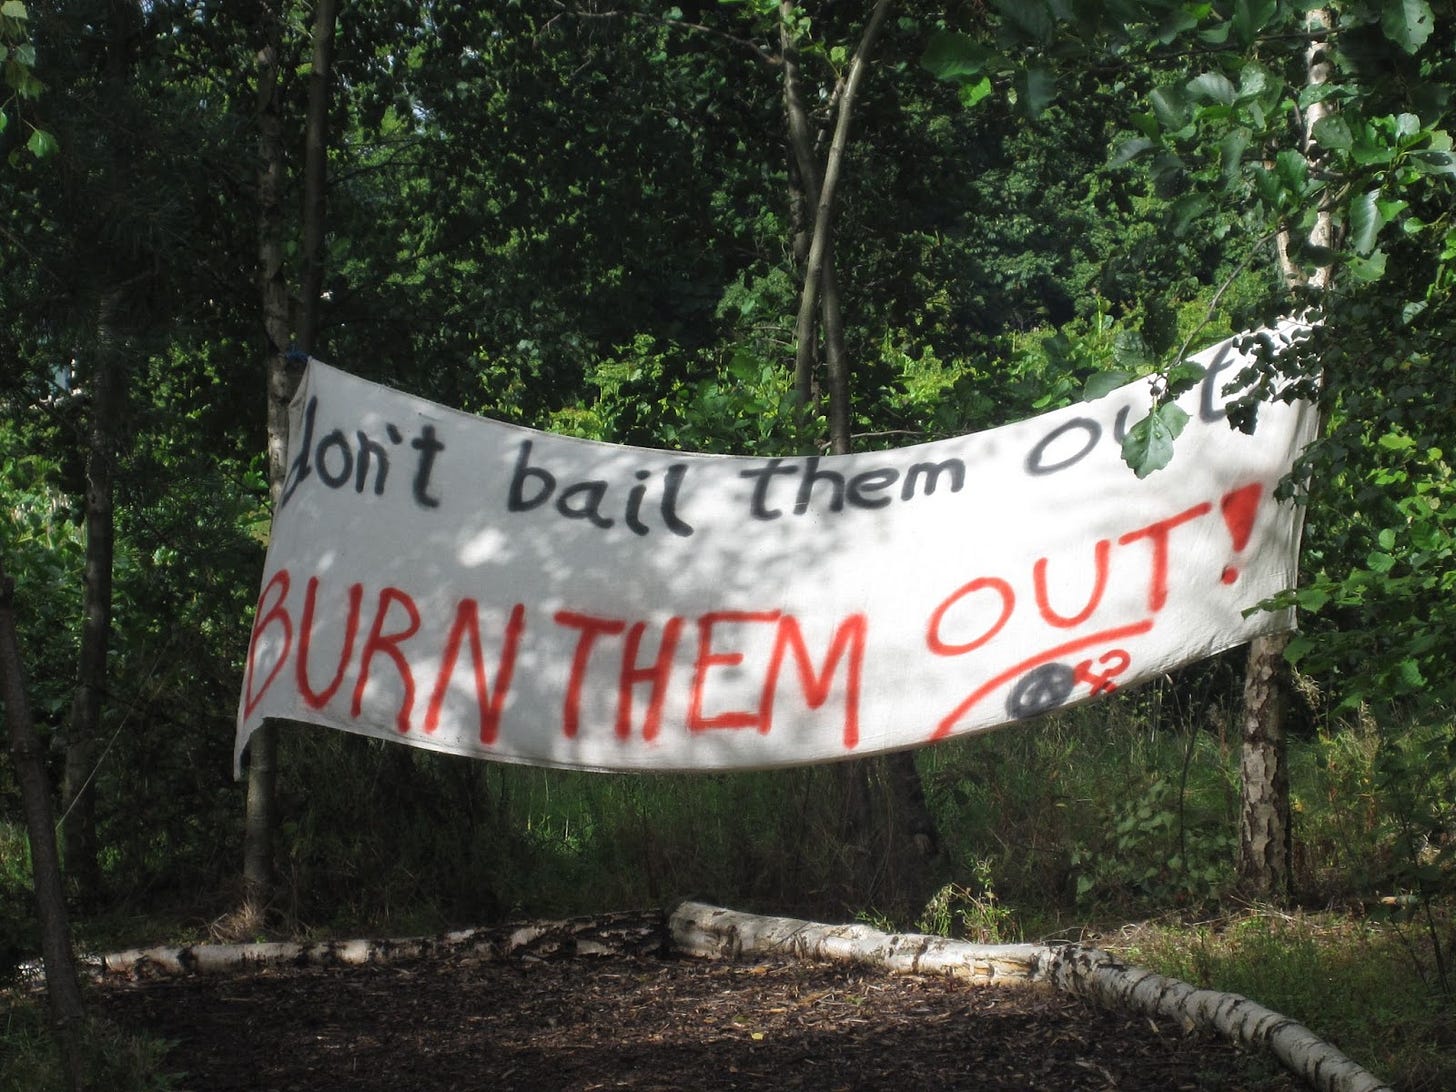 don't bail them out
BURN THEM OUT!